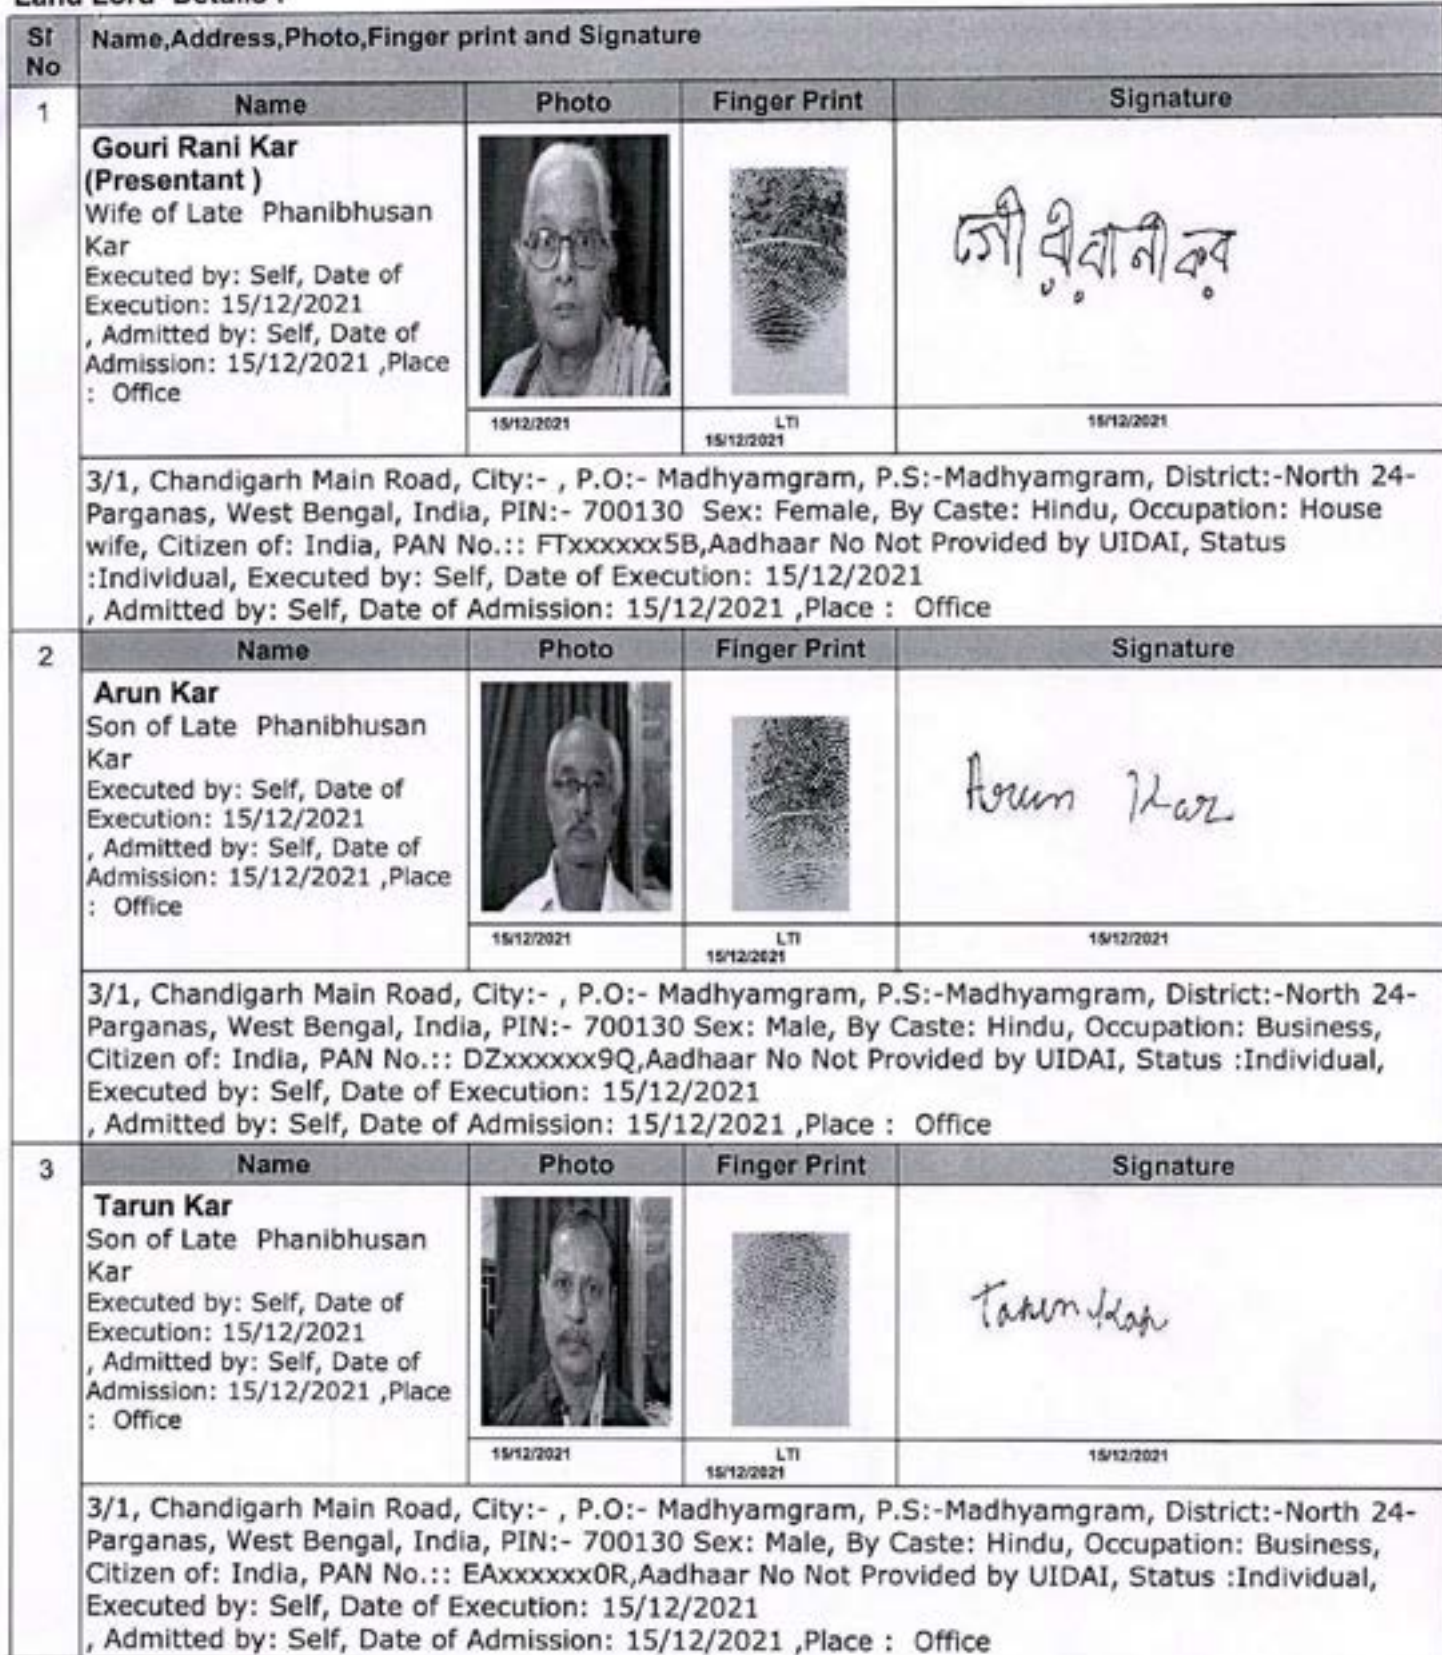 Land Lord Details :
Sl No
Name,Address,Photo,Finger print and Signature
1
Name Photo Finger Print Signature
Gouri Rani Kar
(Presentant )
Wife of Late Phanibhusan
Kar
Executed by: Self, Date of
Execution: 15/12/2021
, Admitted by: Self, Date of
Admission: 15/12/2021 ,Place
: Office
গৌরীরানী কর
15/12/2021 LTI 15/12/2021
15/12/2021
3/1, Chandigarh Main Road, City:- , P.O:- Madhyamgram, P.S:-Madhyamgram, District:-North 24-
Parganas, West Bengal, India, PIN:- 700130 Sex: Female, By Caste: Hindu, Occupation: House
wife, Citizen of: India, PAN No.:: FTxxxxxx5B,Aadhaar No Not Provided by UIDAI, Status
:Individual, Executed by: Self, Date of Execution: 15/12/2021
, Admitted by: Self, Date of Admission: 15/12/2021 ,Place : Office
2
Name Photo Finger Print Signature
Arun Kar
Son of Late Phanibhusan
Kar
Executed by: Self, Date of
Execution: 15/12/2021
, Admitted by: Self, Date of
Admission: 15/12/2021 ,Place
: Office
Arun Kar
15/12/2021 LTI 15/12/2021
15/12/2021
3/1, Chandigarh Main Road, City:- , P.O:- Madhyamgram, P.S:-Madhyamgram, District:-North 24-
Parganas, West Bengal, India, PIN:- 700130 Sex: Male, By Caste: Hindu, Occupation: Business,
Citizen of: India, PAN No.:: DZxxxxxx9Q,Aadhaar No Not Provided by UIDAI, Status :Individual,
Executed by: Self, Date of Execution: 15/12/2021
, Admitted by: Self, Date of Admission: 15/12/2021 ,Place : Office
3
Name Photo Finger Print Signature
Tarun Kar
Son of Late Phanibhusan
Kar
Executed by: Self, Date of
Execution: 15/12/2021
, Admitted by: Self, Date of
Admission: 15/12/2021 ,Place
: Office
Tarun Kar
15/12/2021 LTI 15/12/2021
15/12/2021
3/1, Chandigarh Main Road, City:- , P.O:- Madhyamgram, P.S:-Madhyamgram, District:-North 24-
Parganas, West Bengal, India, PIN:- 700130 Sex: Male, By Caste: Hindu, Occupation: Business,
Citizen of: India, PAN No.:: EAxxxxxx0R,Aadhaar No Not Provided by UIDAI, Status :Individual,
Executed by: Self, Date of Execution: 15/12/2021
, Admitted by: Self, Date of Admission: 15/12/2021 ,Place : Office